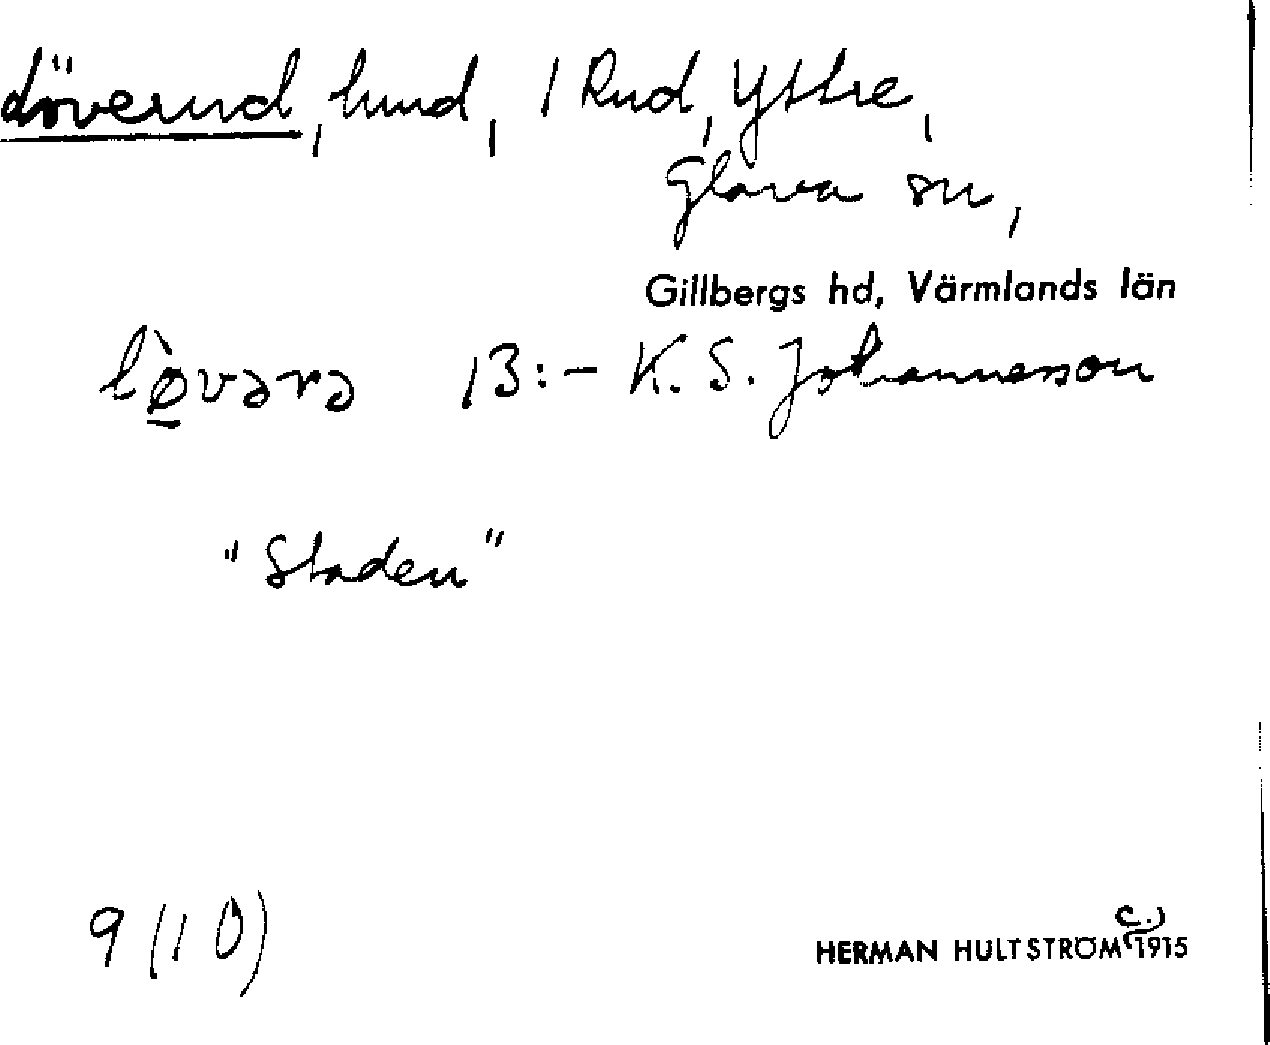 döverud, lund, 1 Rud, Yttre,
Glava sn,
Gillbergs hd, Värmlands län
lø̀vərə 13:- K. S. Johannesson
"Staden"
9 (10)
HERMAN HULTSTRÖM c.) 1915